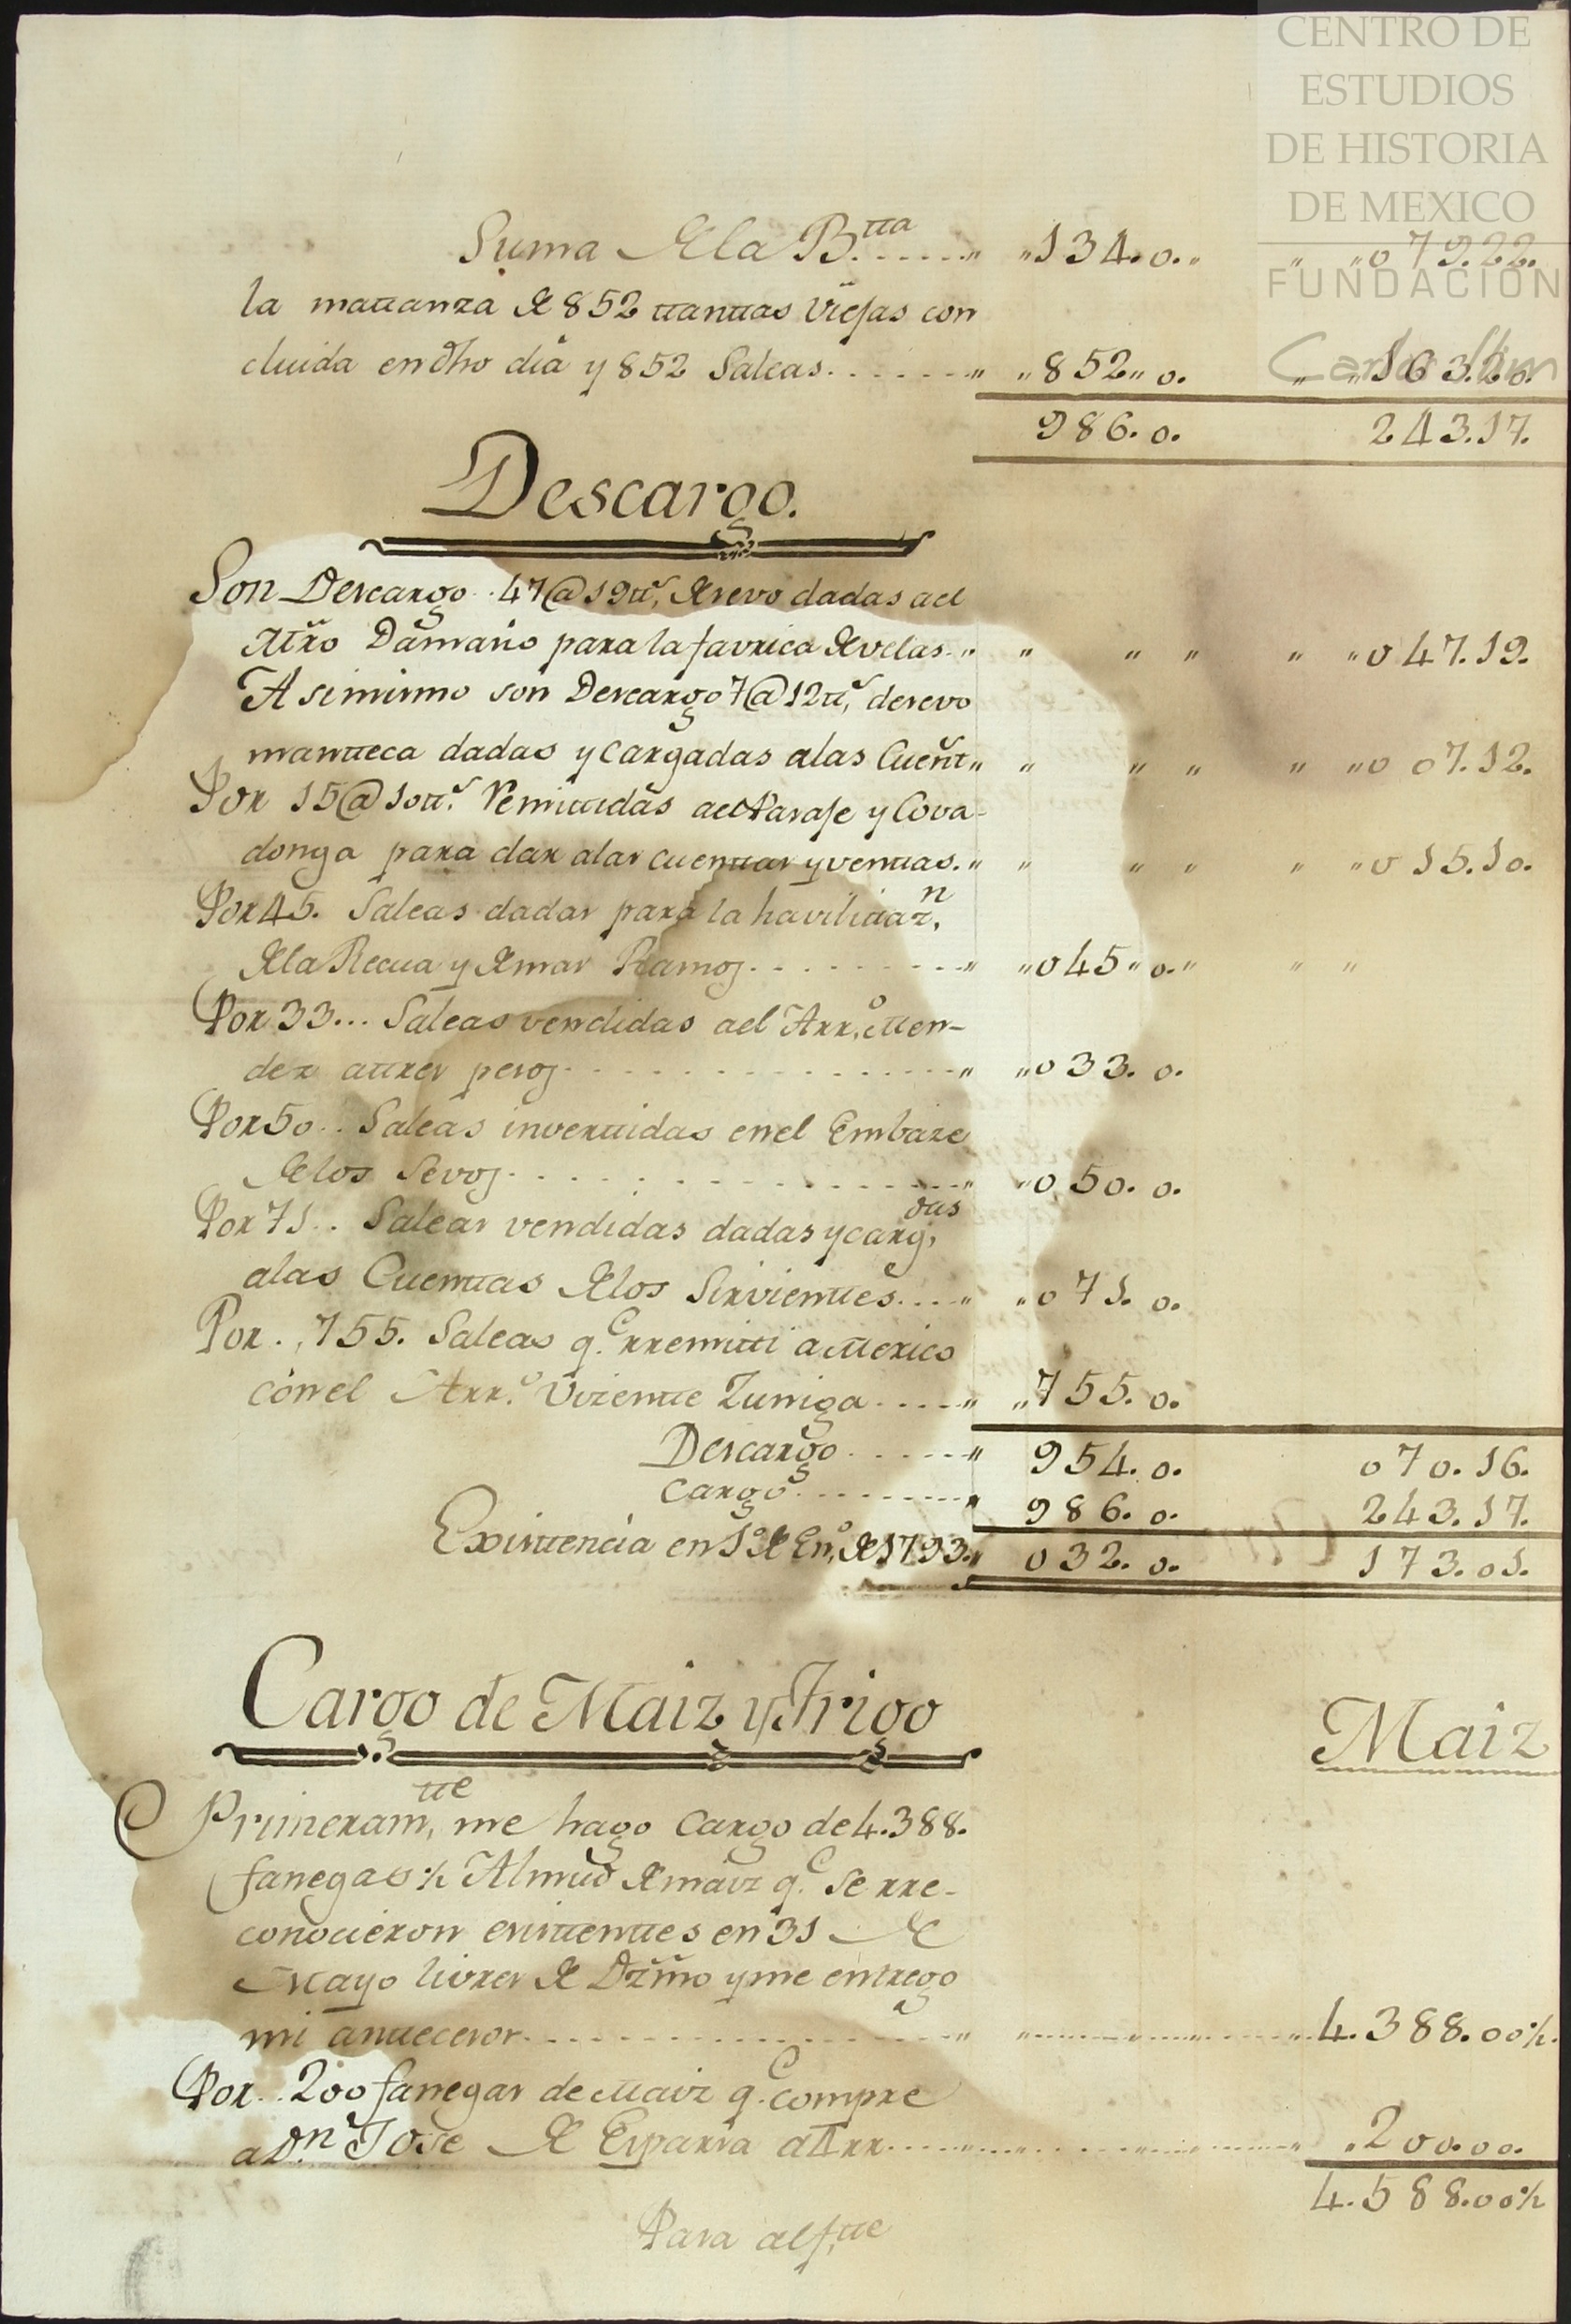 CENTRO DE
ESTUDIOS
DE HISTORIA
DE MEXICO
FUNDACIÓN
Carlos Slim
Suma de la B.tta „ „134.o.„ „ „o79.22.
la mattanza de 852 ttanttas Viejas con
cluida en dho dia y 852 Saleas. „ „852„o. „ „163.20.
986.o. 243.17.
Descargo.
Son Descargo 47@19tt.s de sevo dadas ael
Mtro Damaño para la favrica de velas. „ „ „ „ „ „o47.19.
A simismo son Descargo 7@12tt.s de sevo
mantteca dadas y cargadas alas Cuentt „ „ „ „ „ „o07.12.
Por 15@10tt.s Remittidas ael Paraje y Cova-
donga para dar alas cuenttas y venttas. „ „ „ „ „ „o15.10.
Por 45. Saleas dadas para la havilitaz.n
de la Recua y demas Ramos „ „o45„o.„ „ „
Por 33... Saleas vendidas ael Arr.o Men-
dez attres pesos „ „o33.o.
Por 50.. Saleas inverttidas en el Embaze
de los Sevos „ „o50.o.
Por 71.. Saleas vendidas dadas y carg.das
alas Cuenttas de los Sirvienttes „ „o71.o.
Por. 755. Saleas q.e rremitti a Mexico
con el Arr.o Vizentte Zuniga „ „755.o.
Descargo „ 954.o. o70.16.
Cargo „ 986.o. 243.17.
Existtencia en 1.o de En.o de 1793. „ 032.o. 173.01.
Cargo de Maiz y Trigo Maiz
Primeram.tte me hago Cargo de 4.388.
fanegas ½ Almud de maiz q.e se rre-
conocieron existtenttes en 31 de
Mayo livres de Dzmo y me entrego
mi anttecesor. „ 4.388.00½.
Por.. 200 fanegas de Maiz q.e compre
a D.n Jose de Esparsa a 11rr. „ .200.00.
4.588.00½
Para alf.tte